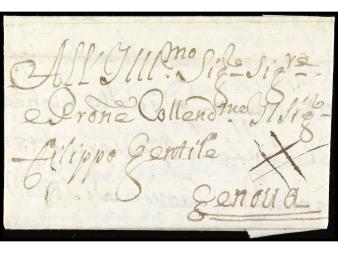 All'Ill.mo Sig.e Sig.re
e Prone Collend.mo Il Sig.e
Filippo Gentile
Genova